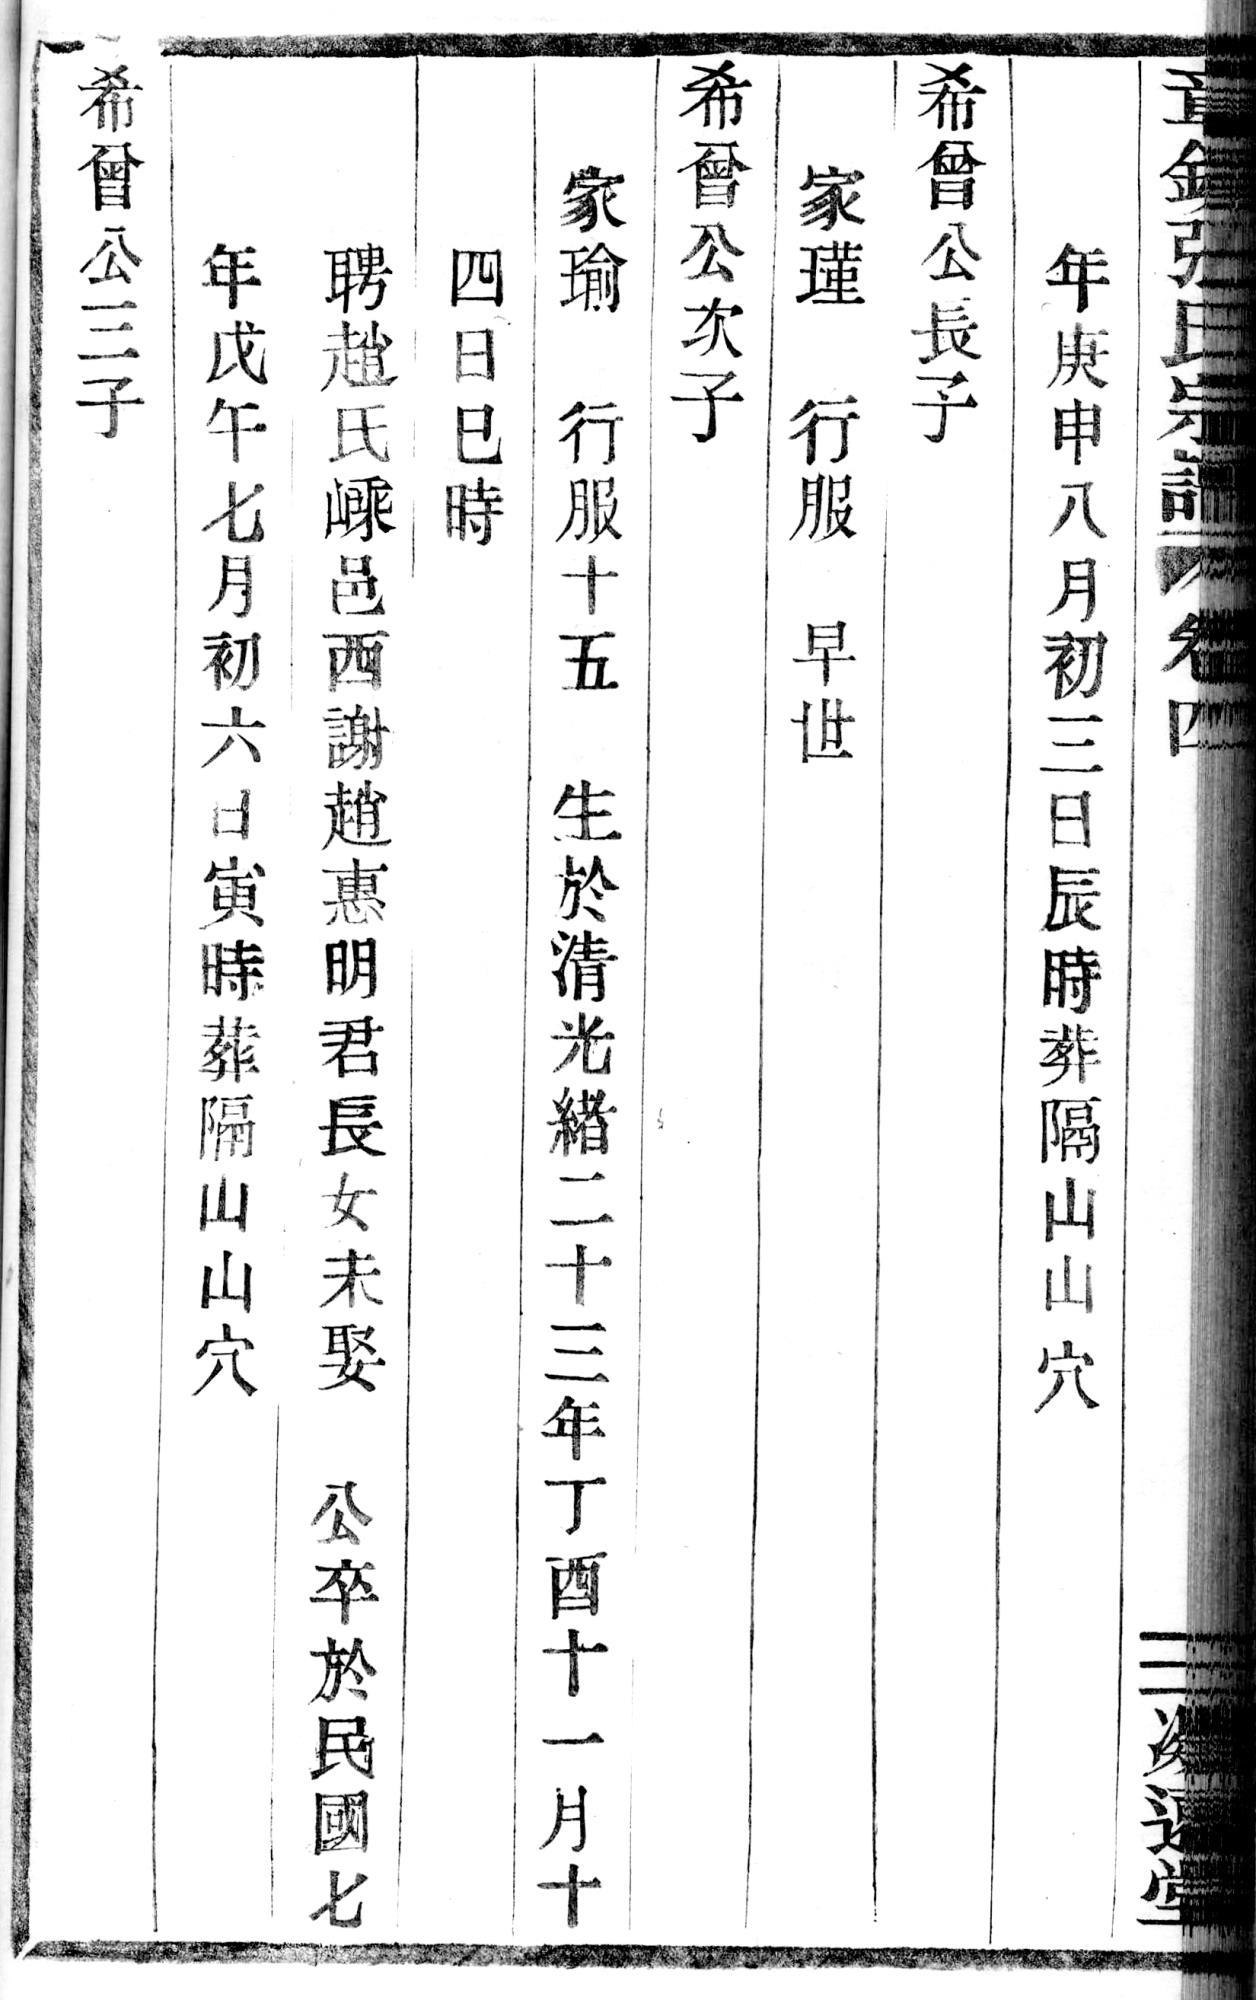 張氏宗譜 卷四 追遠堂
年庚申八月初三日辰時葬隔山山穴
希曾公長子
家瑾 行服 早世
希曾公次子
家瑜 行服十五 生於清光緒二十三年丁酉十一月十
四日巳時
聘趙氏嵊邑西謝趙惠明君長女未娶 公卒於民國七
年戊午七月初六日寅時葬隔山山穴
希曾公三子